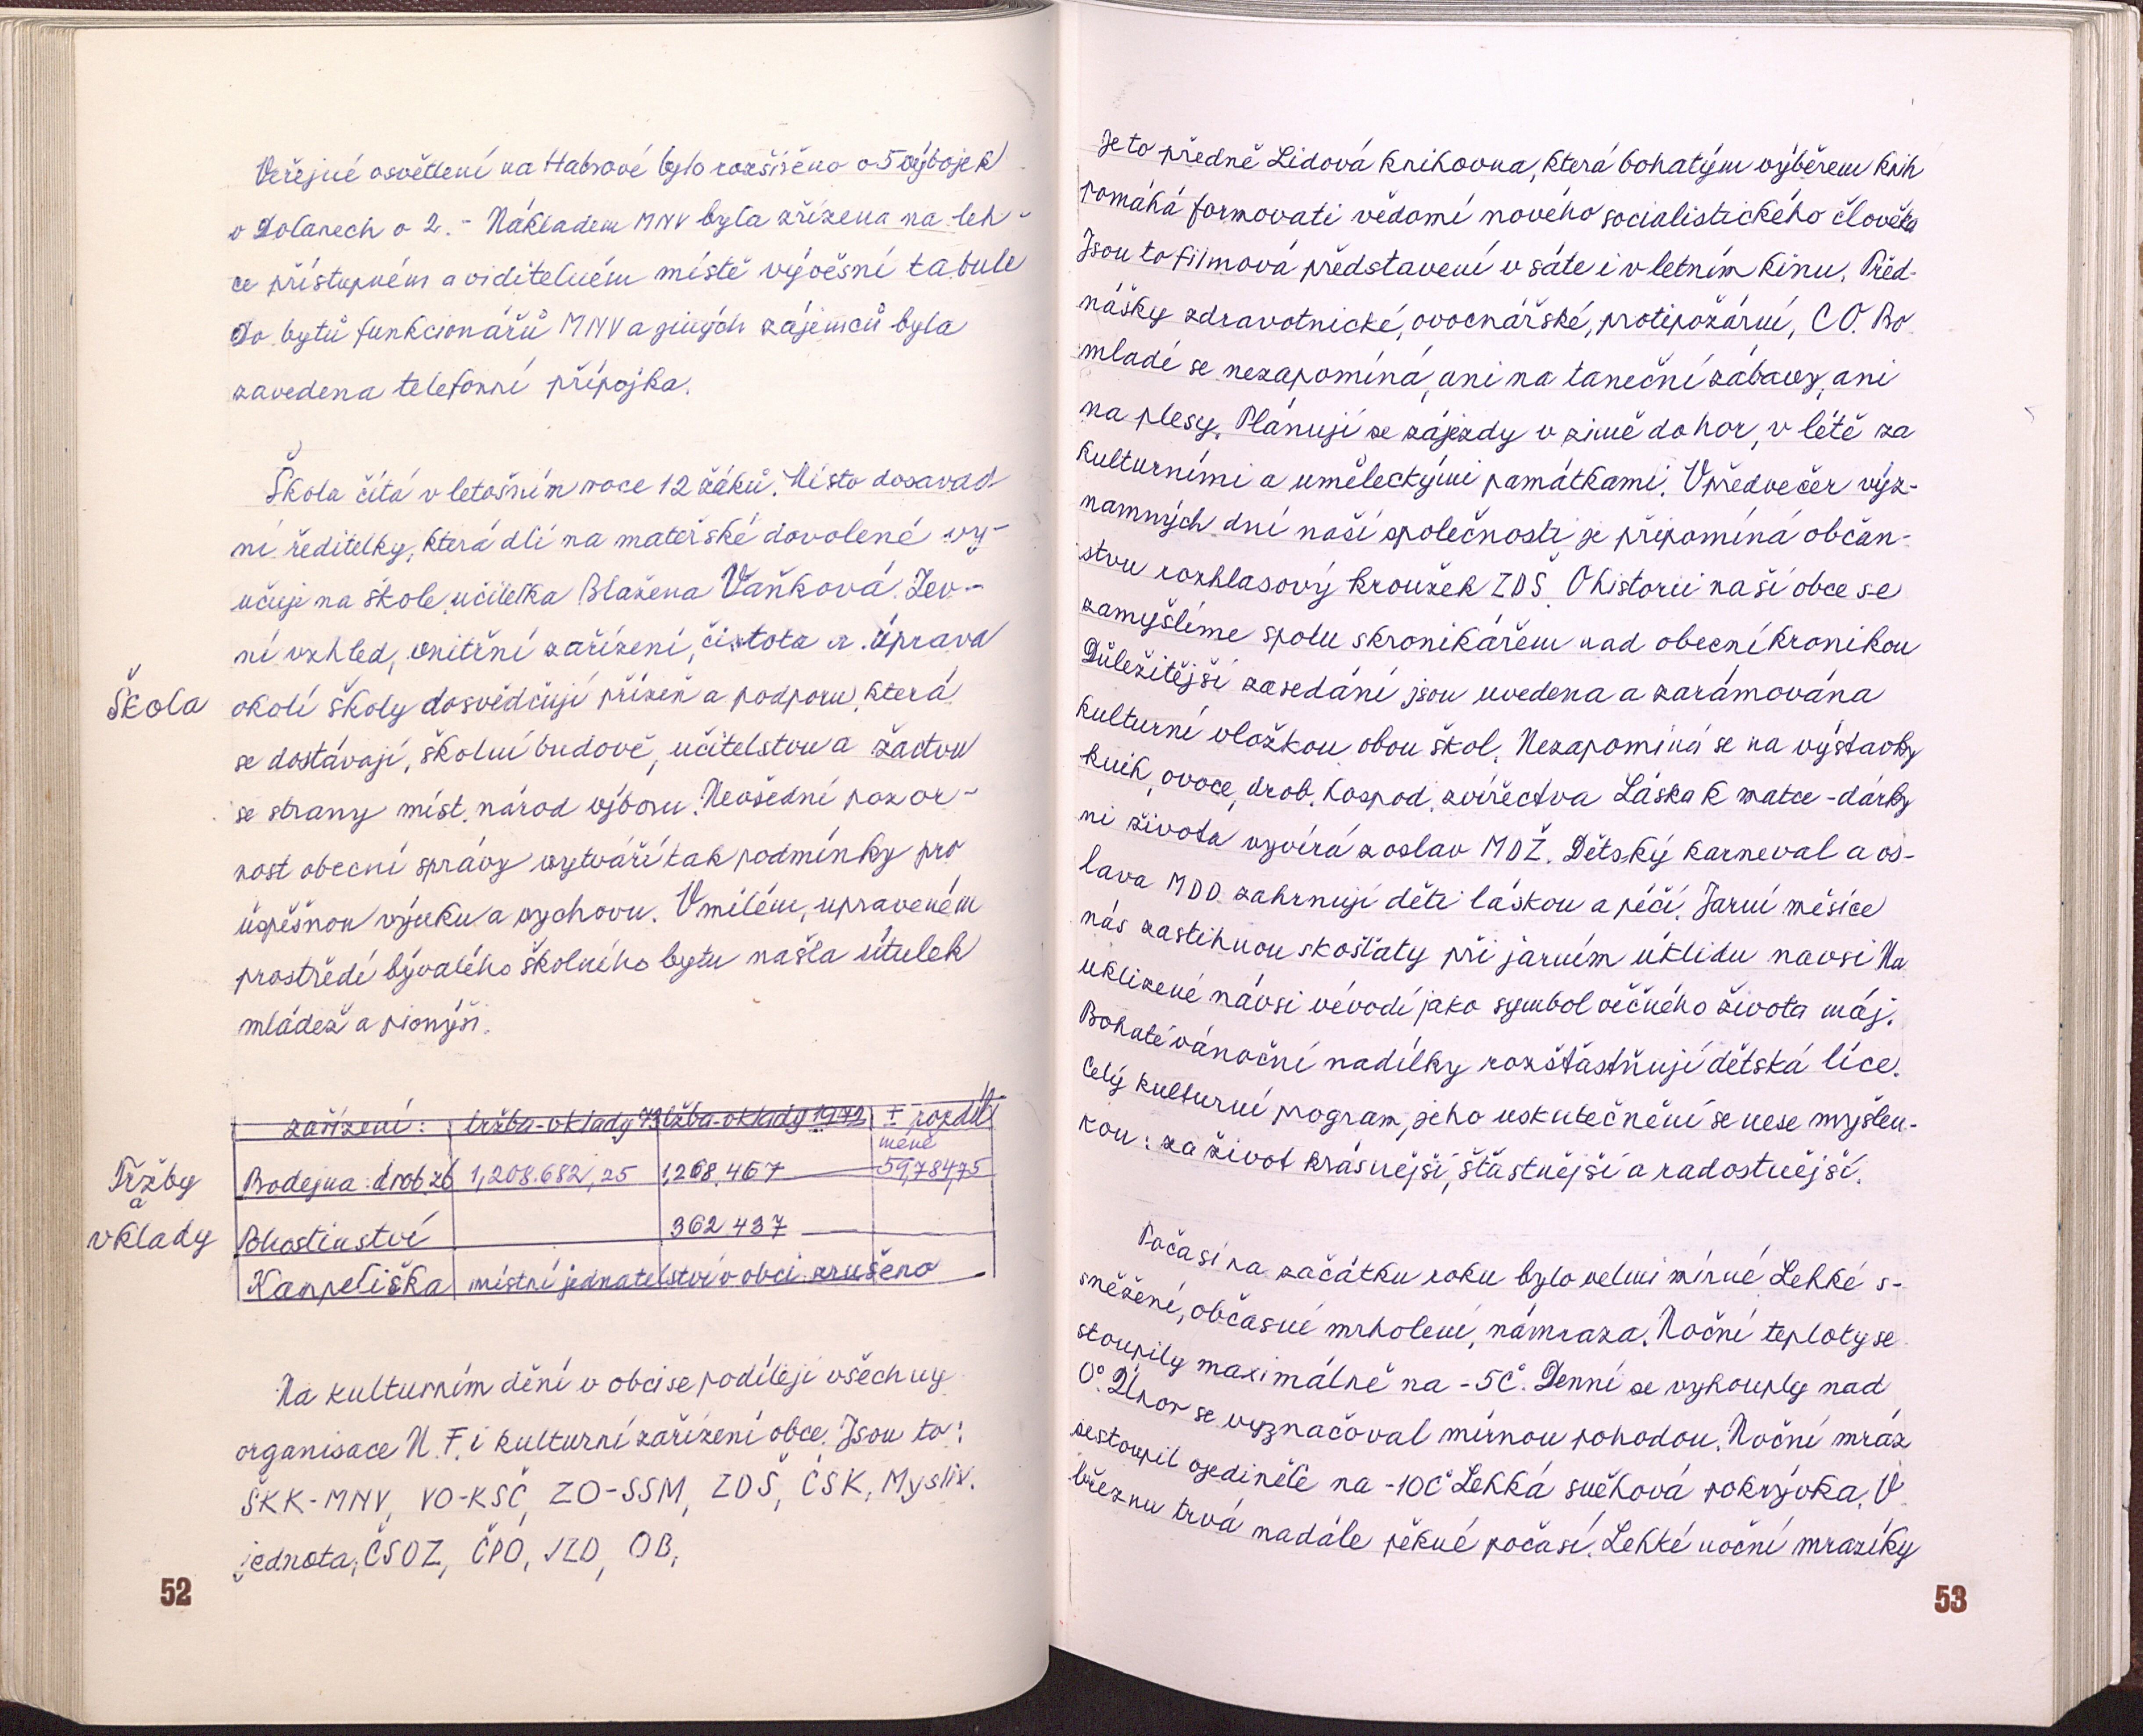 Veřejné osvětlení na Habrové bylo rozšířeno o 5 výbojek
v Dolanech o 2.- Nákladem MNV byla zřízena na leh-
ce přístupném a viditelném místě vývěsní tabule
Do bytů funkcionářů MNV a jiných zájemců byla
zavedena telefonní přípojka.
Škola čítá v letošním roce 12 žáků. Místo dosavad
ní ředitelky, která dlí na mateřské dovolené vy-
učuje na škole učitelka Blažena Vaňková. Zev-
ní vzhled, vnitřní zařízení, čistota a úprava
Škola
okolí školy dosvědčují přízeň a podporu, která
se dostávají, školní budově, učitelstvu a žactvu
se strany míst. národ výboru. Nevšední pozor-
nost obecní správy vytváří tak podmínky pro
úspěšnou výuku a vychovu. V milém, upraveném
prostředí bývalého školního bytu našla útulek
mládež a pionýři.
zařízení: tržba-vklady 73 tržba-vklady 1972 ± rozdíl
Tržby
a
vklady
méně
Prodejna: drob. zb 1,208.682,25 1,268.467 59,784,75
Phostinství 362 437
Kampelička místní jednatelství v obci zrušeno
Na kulturním dění v obci se podílejí všechny
organisace N.F. i kulturní zařízení obce. Jsou to:
ŠKK-MNV, VO-KSČ, ZO-SSM, ZDŠ, ČSK, Mysliv.
jednota, ČSOZ, ČPO, JZD, OB,
52
Je to předně Lidová knihovna, která bohatým výběrem knih
pomáhá formovati vědomí nového socialistického člověka
Jsou to filmová představení v sále i v letním kinu. Před-
nášky zdravotnické, ovocnářské, protipožární, CO. Na
mladé se nezapomíná, ani na taneční zábavy, ani
na plesy. Plánují se zájezdy v zimě do hor, v létě za
kulturními a uměleckými památkami. V předvečer výz-
namných dní naší společnosti je připomíná občan-
stvu rozhlasový kroužek ZDŠ. O historii naší obce se
zamyšlíme spolu s kronikářem nad obecní kronikou
Důležitější zasedání jsou uvedena a zarámována
kulturní vložkou obou škol. Nezapomíná se na výstavky
knih, ovoce, drob. hospod. zvířectva Láska k matce - dárky
ni života vyvírá z oslav MDŽ. Dětský karneval a os-
lava MDD zahrnují děti láskou a péčí. Jarní měsíce
nás zastihnou s košťaty při jarním úklidu navsi Na
uklizené návsi vévodí jako symbol věčného života máj.
Bohaté vánoční nadílky rozšťastňují dětská líce.
Celý kulturní program, jeho uskutečnění se nese myšlen-
kou: za život krásnější, šťastnější a radostnější.
Počasí na začátku roku bylo velmi mírné Lehké s-
sněžení, občasné mrholení, námraza. Noční teploty se
stoupily maximálně na -5C°. Denní se vyhouply nad
0°. Únor se vyznačoval mírnou pohodou. Noční mráz
sestoupil ojediněle na -10C° Lehká sněhová pokrývka. V
březnu trvá nadále pěkné počasí. Lehké noční mrazíky
53